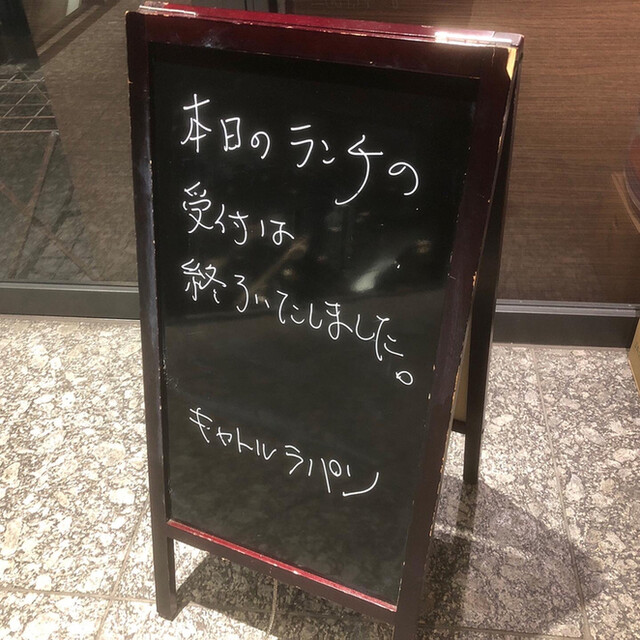 本日のランチの
受付は
終了いたしました。
キャトルラパン